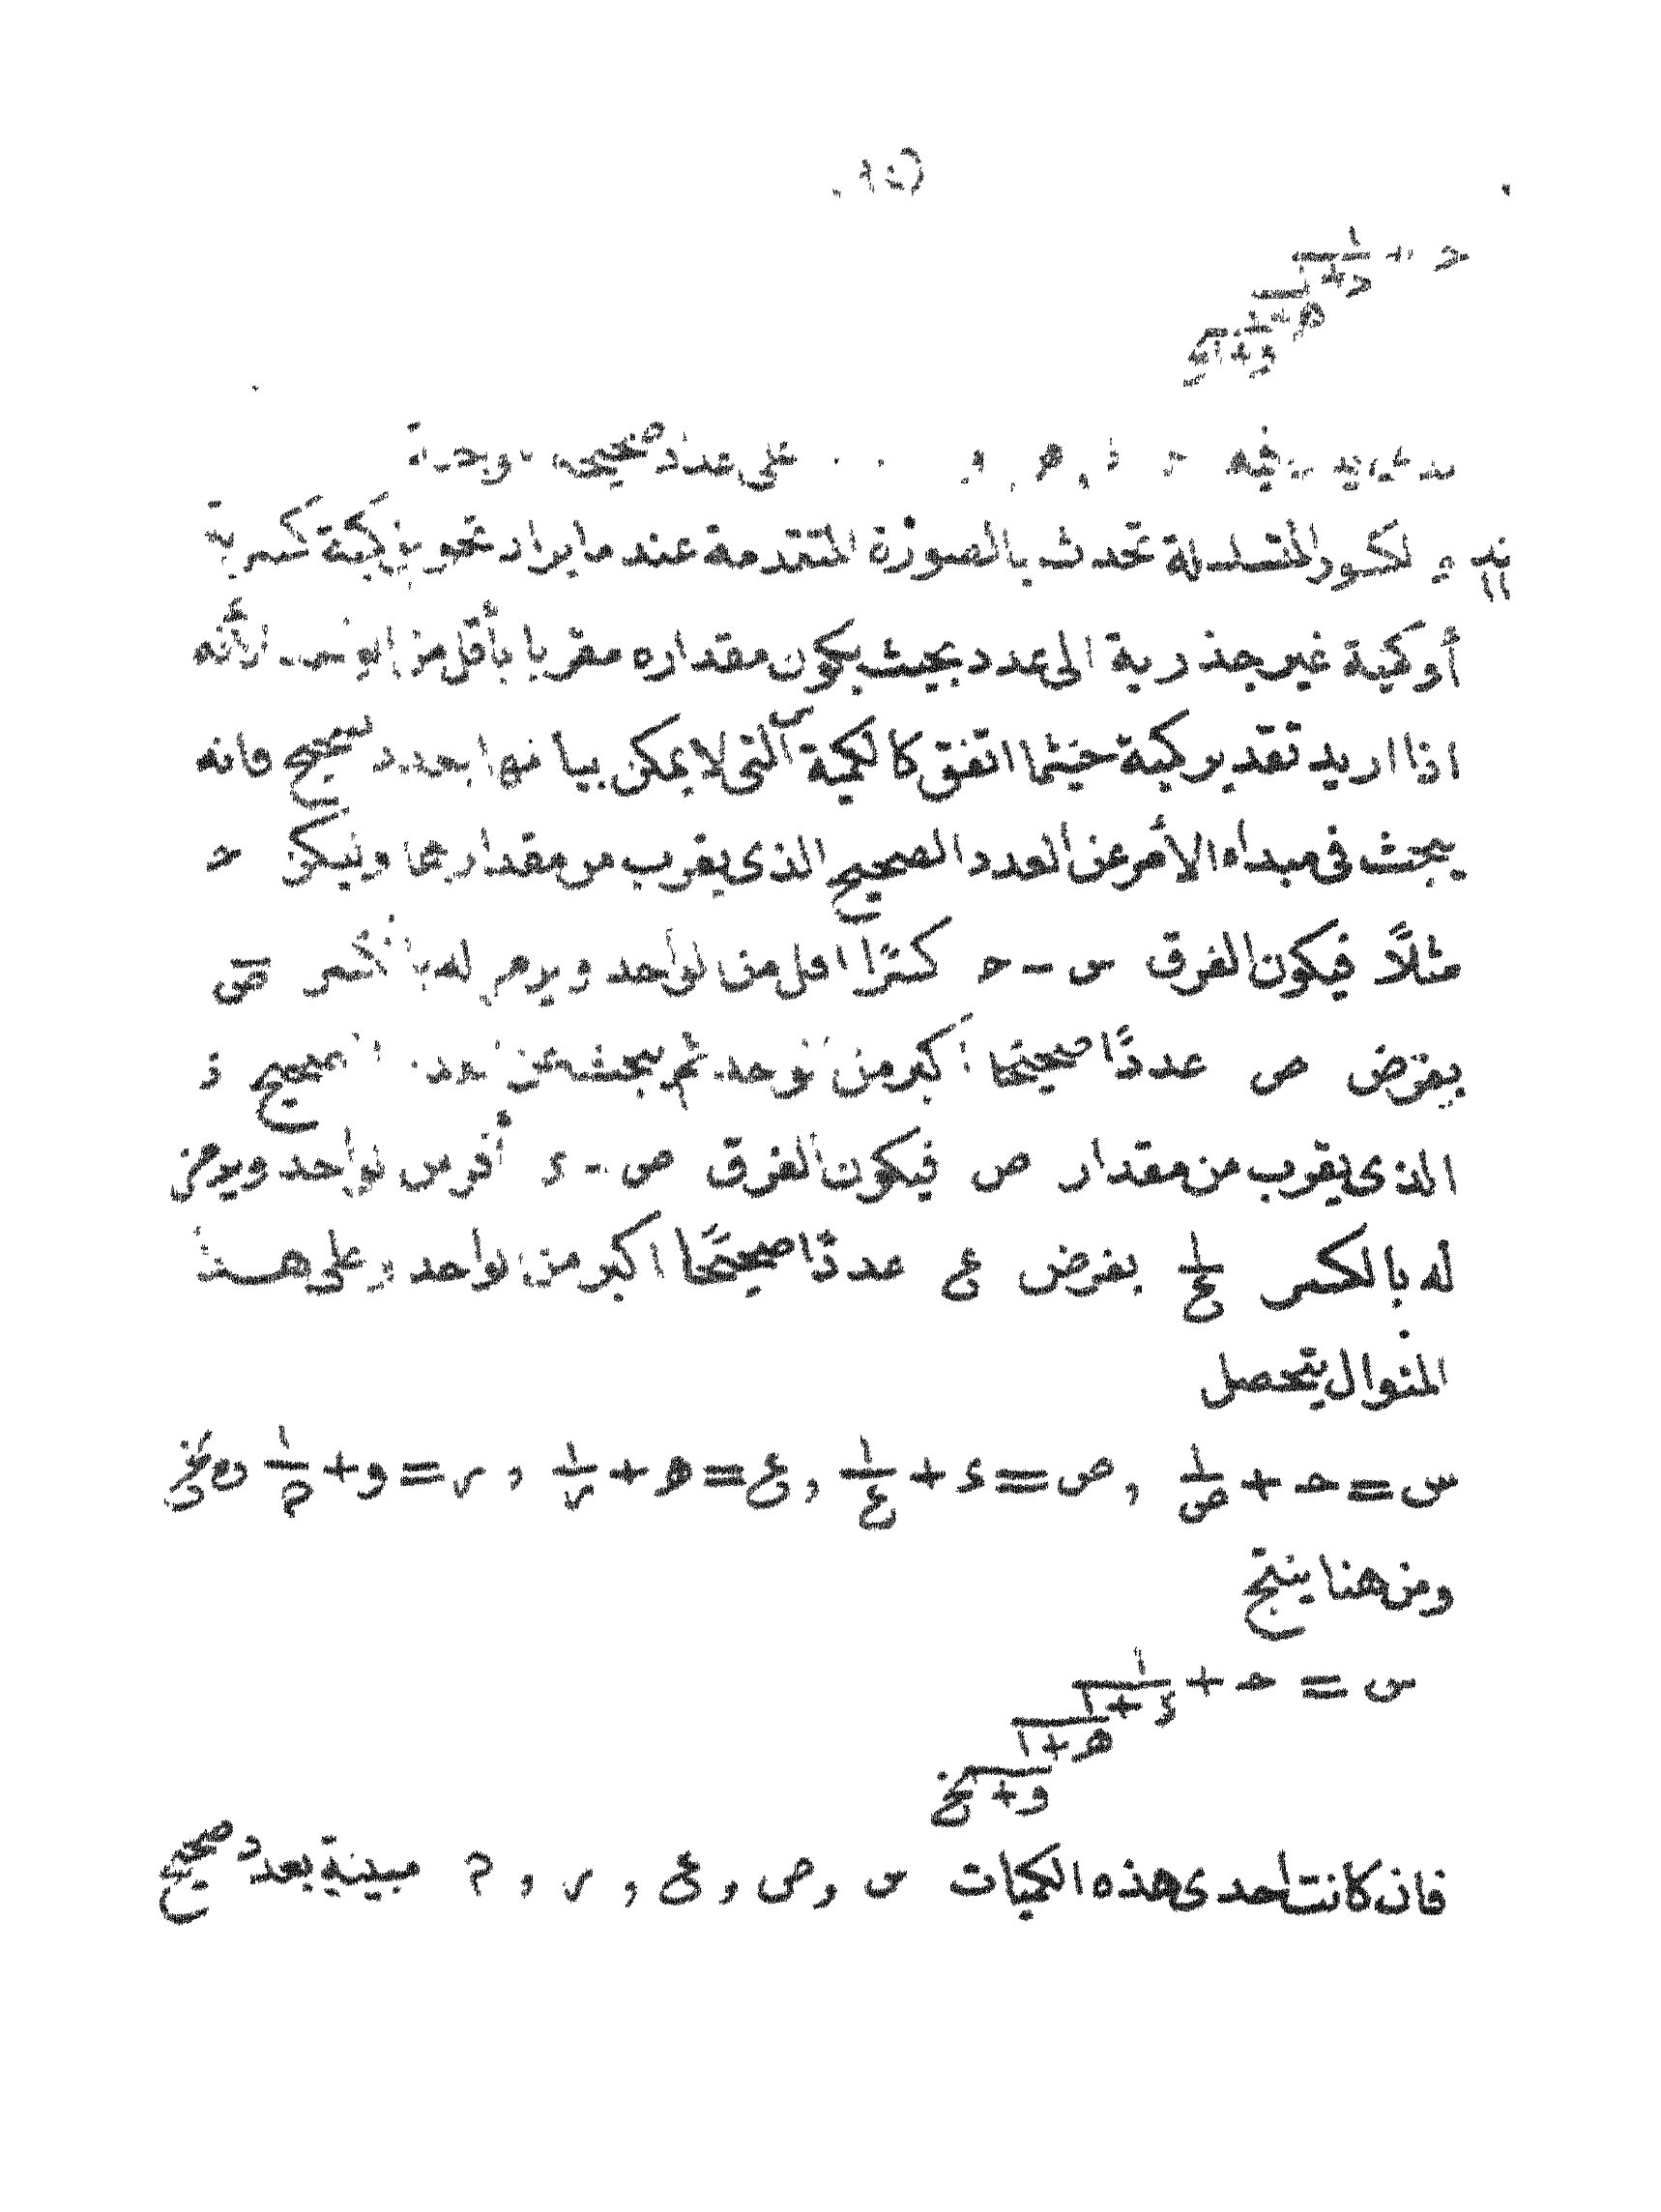 حـ + ١/(د + ١/(هـ + ١/(و + الخ
فيه حـ , د , هـ , و . . على عدد صحيح
الكسور المتسلسلة تحدث بالصورة المتقدمة عند ما يراد تحويل كمية كسرية
أو كمية غير جذرية الى عدد بحيث يكون مقداره مقربا بأقل من لأنه
اذا اريد تقدير كمية حيثما اتفق كالكمية س التى لا يمكن بيانها بعدد صحيح فانه
يبحث فى مبداء الأمر عن العدد الصحيح الذى يقرب من مقدارها وليكن حـ
مثلاً فيكون الفرق س - حـ كسرًا اقل من الواحد ويرمز له بالكسر ١/ص
بفرض ص عددًا صحيحًا اكبر من الواحد ثم يبحث عن العدد الصحيح د
الذى يقرب من مقدار ص فيكون الفرق ص - د أقل من الواحد ويرمز
له بالكسر ١/ع بفرض ع عددًا صحيحًا اكبر من الواحد وعلى هذا
المنوال يتحصل
س = حـ + ١/ص , ص = د + ١/ع , ع = هـ + ١/ر , ر = و + ١/م وهـ الخ
ومن هنا ينتج
س = حـ + ١/(د + ١/(هـ + ١/(و + الخ
فان كانت احدى هذه الكميات س , ص , ع , ر , م مبينة بعدد صحيح